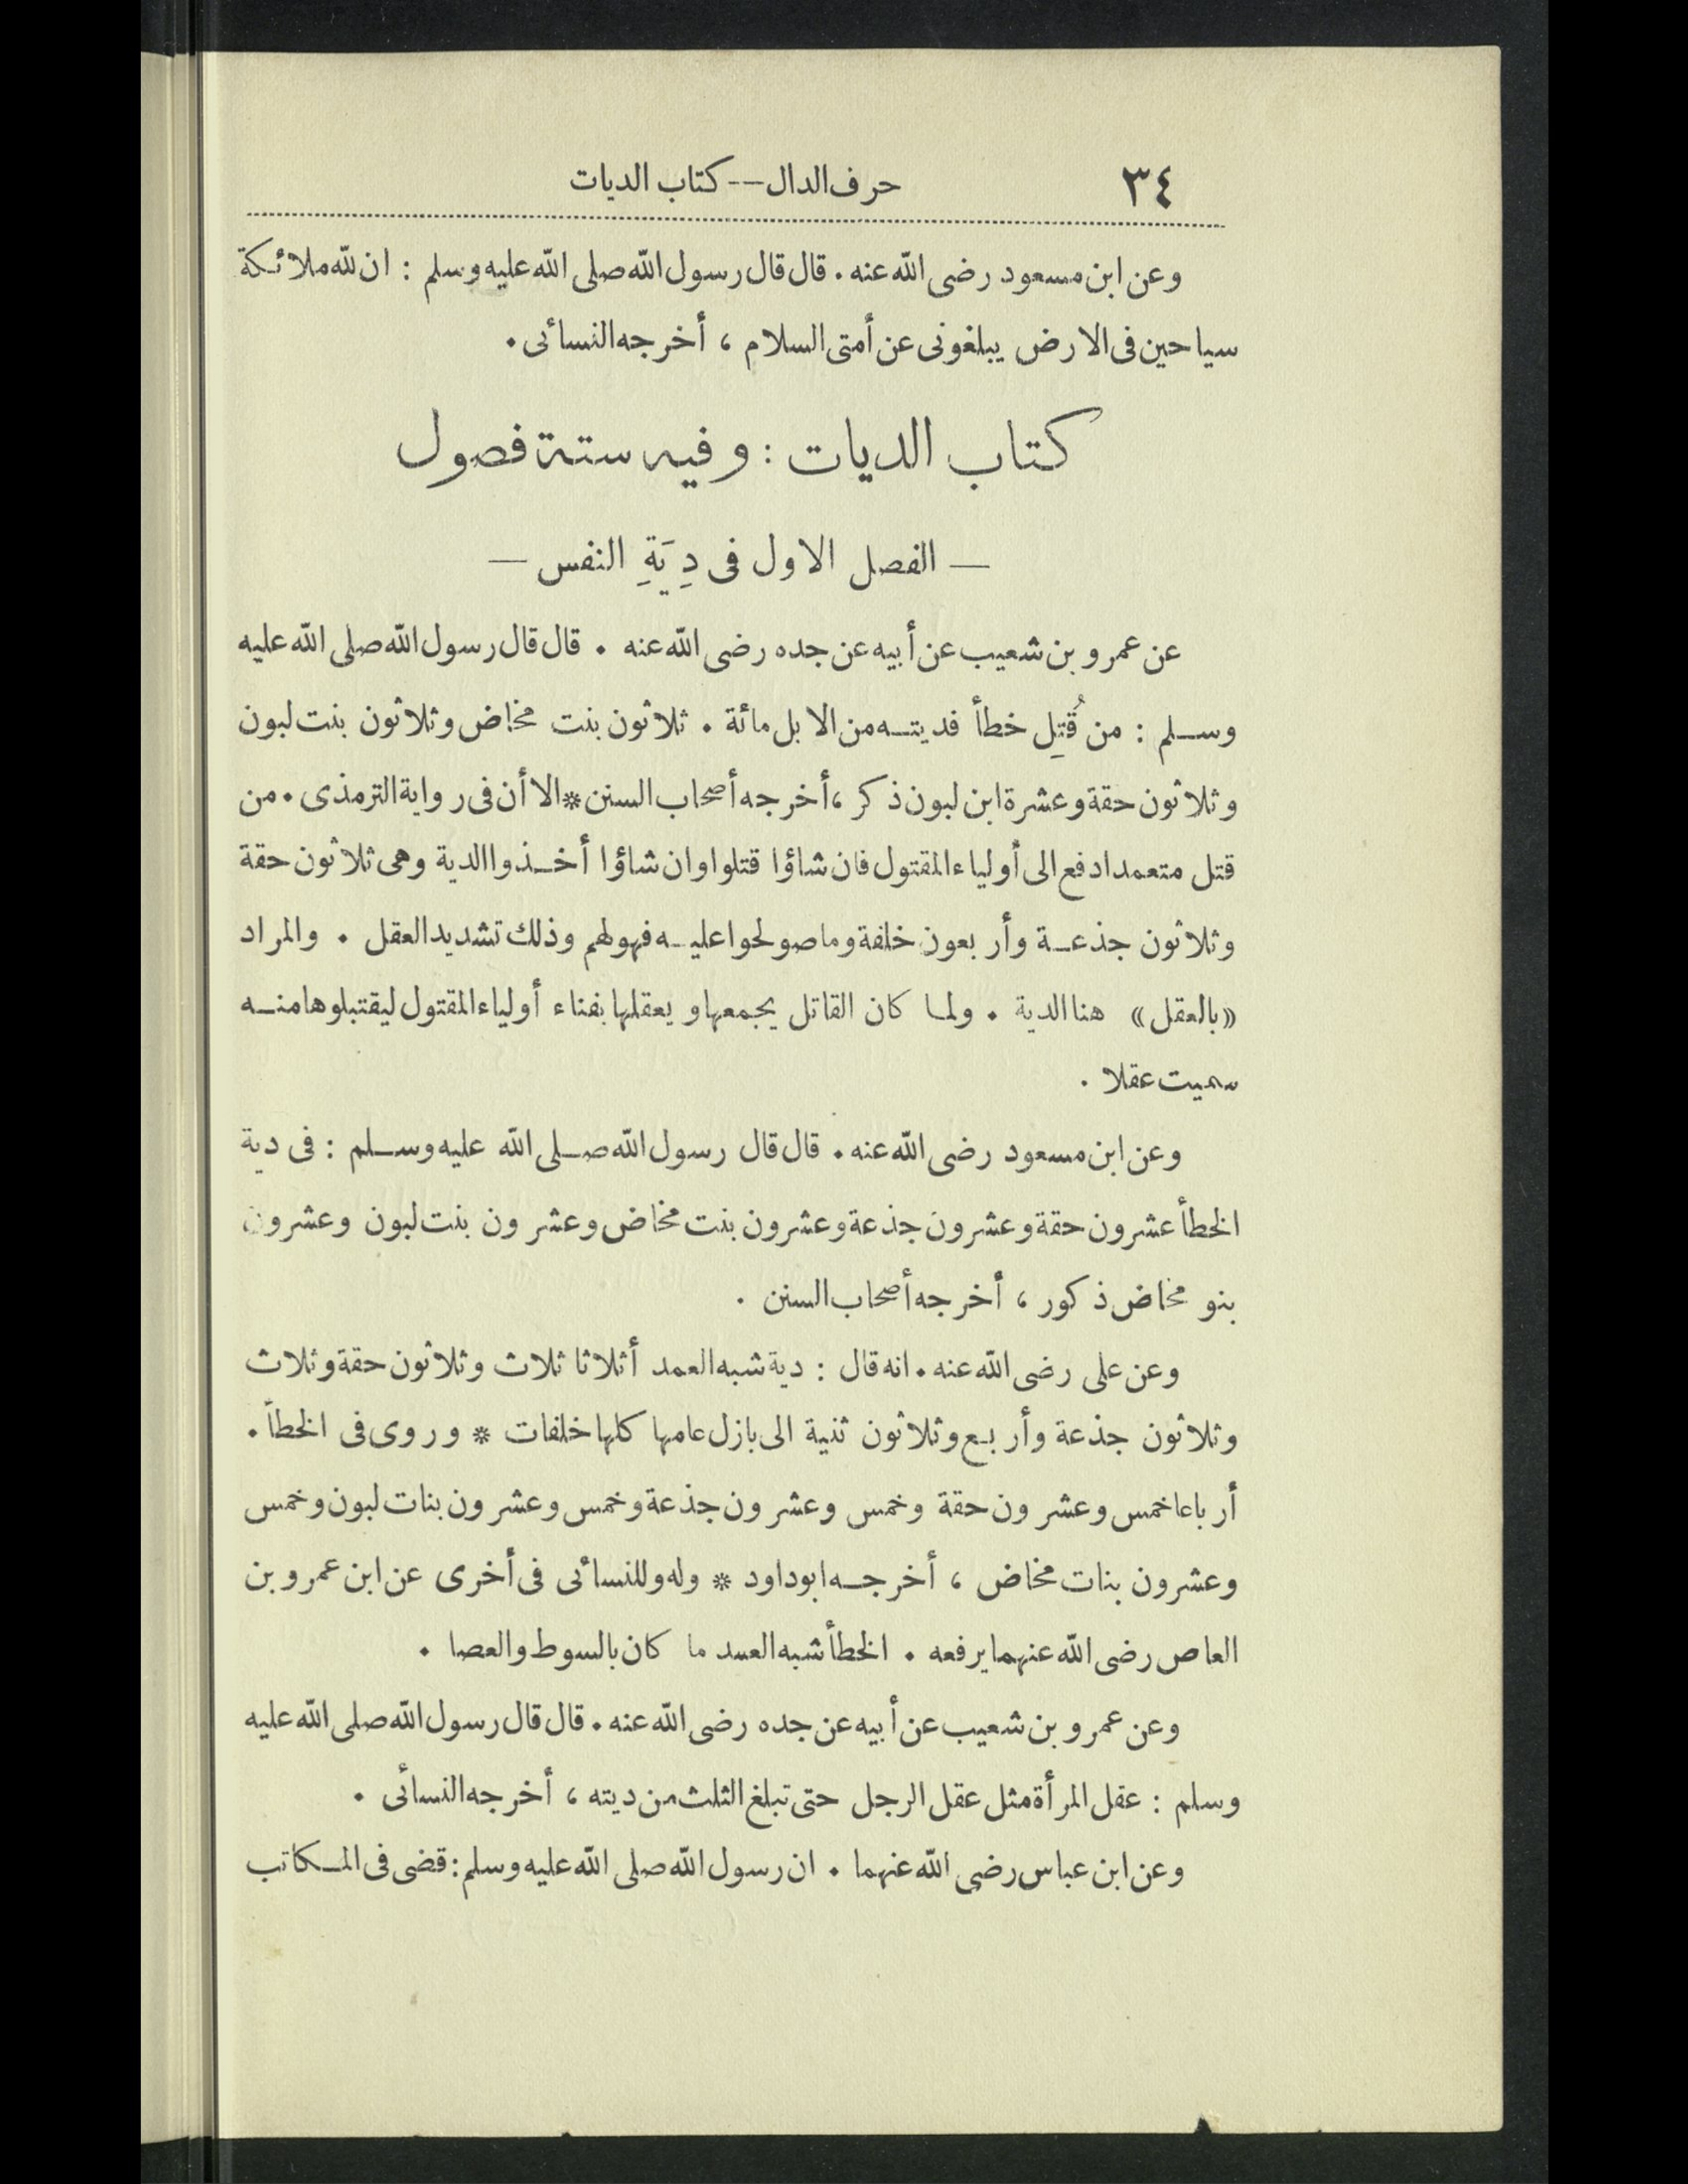 ٣٤
حرف الدال -- كتاب الديات
وعن ابن مسعود رضى الله عنه . قال قال رسول الله صلى الله عليه وسلم : ان لله ملائكة
سياحين فى الارض يبلغونى عن أمتى السلام ، أخرجه النسائى .
كتاب الديات : وفيه ستة فصول
— الفصل الاول فى دِيَةِ النفس —
عن عمرو بن شعيب عن أبيه عن جده رضى الله عنه . قال قال رسول الله صلى الله عليه
وسلم : من قُتِل خطأ فديته من الابل مائة . ثلاثون بنت مخاض وثلاثون بنت لبون
وثلاثون حقة وعشرة ابن لبون ذكر ، أخرجه أصحاب السنن * الا أن فى رواية الترمذى . من
قتل متعمدا دفع الى أولياء المقتول فان شاؤا قتلوا وان شاؤا أخذوا الدية وهى ثلاثون حقة
وثلاثون جذعة وأربعون خلفة وما صولحوا عليه فهو لهم وذلك تشديد العقل . والمراد
«بالعقل» هنا الدية . ولما كان القاتل يجمعها ويعقلها بفناء أولياء المقتول ليقتبلوها منه
سميت عقلا .
وعن ابن مسعود رضى الله عنه . قال قال رسول الله صلى الله عليه وسلم : فى دية
الخطأ عشرون حقة وعشرون جذعة وعشرون بنت مخاض وعشرون بنت لبون وعشرون
بنو مخاض ذكور ، أخرجه أصحاب السنن .
وعن على رضى الله عنه . انه قال : دية شبه العمد أثلاثا ثلاث وثلاثون حقة وثلاث
وثلاثون جذعة وأربع وثلاثون ثنية الى بازل عامها كلها خلفات * وروى فى الخطأ .
أرباعا خمس وعشرون حقة وخمس وعشرون جذعة وخمس وعشرون بنات لبون وخمس
وعشرون بنات مخاض ، أخرجه ابو داود * وله وللنسائى فى أخرى عن ابن عمرو بن
العاص رضى الله عنهما يرفعه . الخطأ شبه العمد ما كان بالسوط والعصا .
وعن عمرو بن شعيب عن أبيه عن جده رضى الله عنه . قال قال رسول الله صلى الله عليه
وسلم : عقل المرأة مثل عقل الرجل حتى تبلغ الثلث من ديته ، أخرجه النسائى .
وعن ابن عباس رضى الله عنهما . ان رسول الله صلى الله عليه وسلم : قضى فى المكاتب